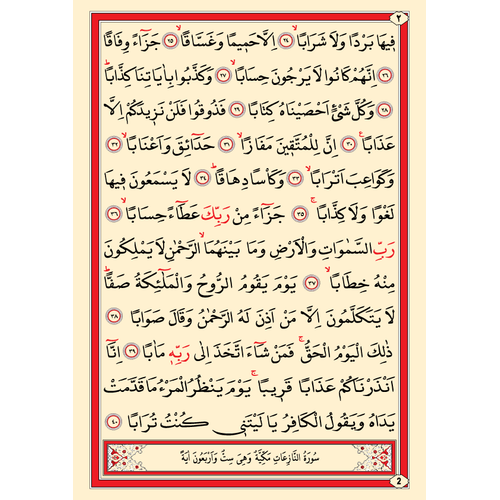 ٢
فِيهَا بَرْدًا وَلَا شَرَابًاۙ ﴿٢٤﴾ اِلَّا حَمِيمًا وَغَسَّاقًاۙ ﴿٢٥﴾ جَزَٓاءً وِفَاقًا
﴿٢٦﴾ اِنَّهُمْ كَانُوا لَا يَرْجُونَ حِسَابًاۙ ﴿٢٧﴾ وَكَذَّبُوا بِاٰيَاتِنَا كِذَّابًاۜ
﴿٢٨﴾ وَكُلَّ شَيْءٍ اَحْصَيْنَاهُ كِتَابًا ﴿٢٩﴾ فَذُوقُوا فَلَنْ نَزِيدَكُمْ اِلَّا
عَذَابًا۟ ﴿٣٠﴾ اِنَّ لِلْمُتَّقِينَ مَفَازًاۙ ﴿٣١﴾ حَدَٓائِقَ وَاَعْنَابًاۙ ﴿٣٢﴾
وَكَوَاعِبَ اَتْرَابًاۙ ﴿٣٣﴾ وَكَأْسًا دِهَاقًاۜ ﴿٣٤﴾ لَا يَسْمَعُونَ فِيهَا
لَغْوًا وَلَا كِذَّابًاۚ ﴿٣٥﴾ جَزَٓاءً مِنْ رَبِّكَ عَطَٓاءً حِسَابًاۙ ﴿٣٦﴾
رَبِّ السَّمٰوَاتِ وَالْاَرْضِ وَمَا بَيْنَهُمَاۙ الرَّحْمٰنِ لَا يَمْلِكُونَ
مِنْهُ خِطَابًاۙ ﴿٣٧﴾ يَوْمَ يَقُومُ الرُّوحُ وَالْمَلٰٓئِكَةُ صَفًّاۜ
لَا يَتَكَلَّمُونَ اِلَّا مَنْ اَذِنَ لَهُ الرَّحْمٰنُ وَقَالَ صَوَابًا ﴿٣٨﴾
ذٰلِكَ الْيَوْمُ الْحَقُّۚ فَمَنْ شَٓاءَ اتَّخَذَ اِلٰى رَبِّهِ مَاٰبًا ﴿٣٩﴾ اِنَّٓا
اَنْذَرْنَاكُمْ عَذَابًا قَرِيبًاۚ يَوْمَ يَنْظُرُ الْمَرْءُ مَا قَدَّمَتْ
يَدَاهُ وَيَقُولُ الْكَافِرُ يَا لَيْتَنِي كُنْتُ تُرَابًا ﴿٤٠﴾
سُورَةُ النَّازِعَاتِ مَكِّيَّةٌ وَهِيَ سِتٌّ وَاَرْبَعُونَ اٰيَةً
2